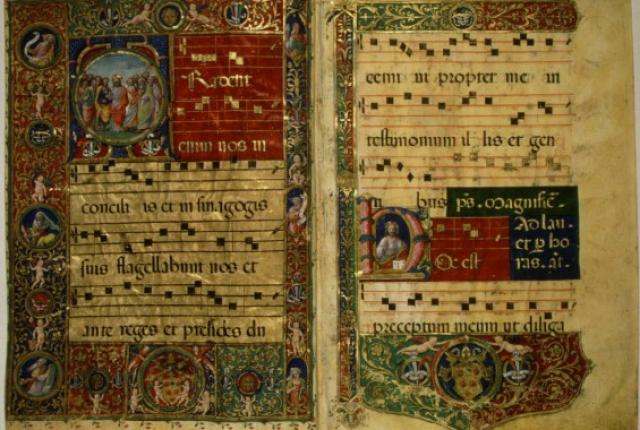 Tradent
enim uos in
concili is et in sinagogis
suis flagellabunt uos et
ante reges et presides du
cemi ni propter me in
testimonium il lis et gen
ti bus ps. Magnific.
Ad lau.
et p ho
HOc est ras. añ.
preceptum meum ut diliga